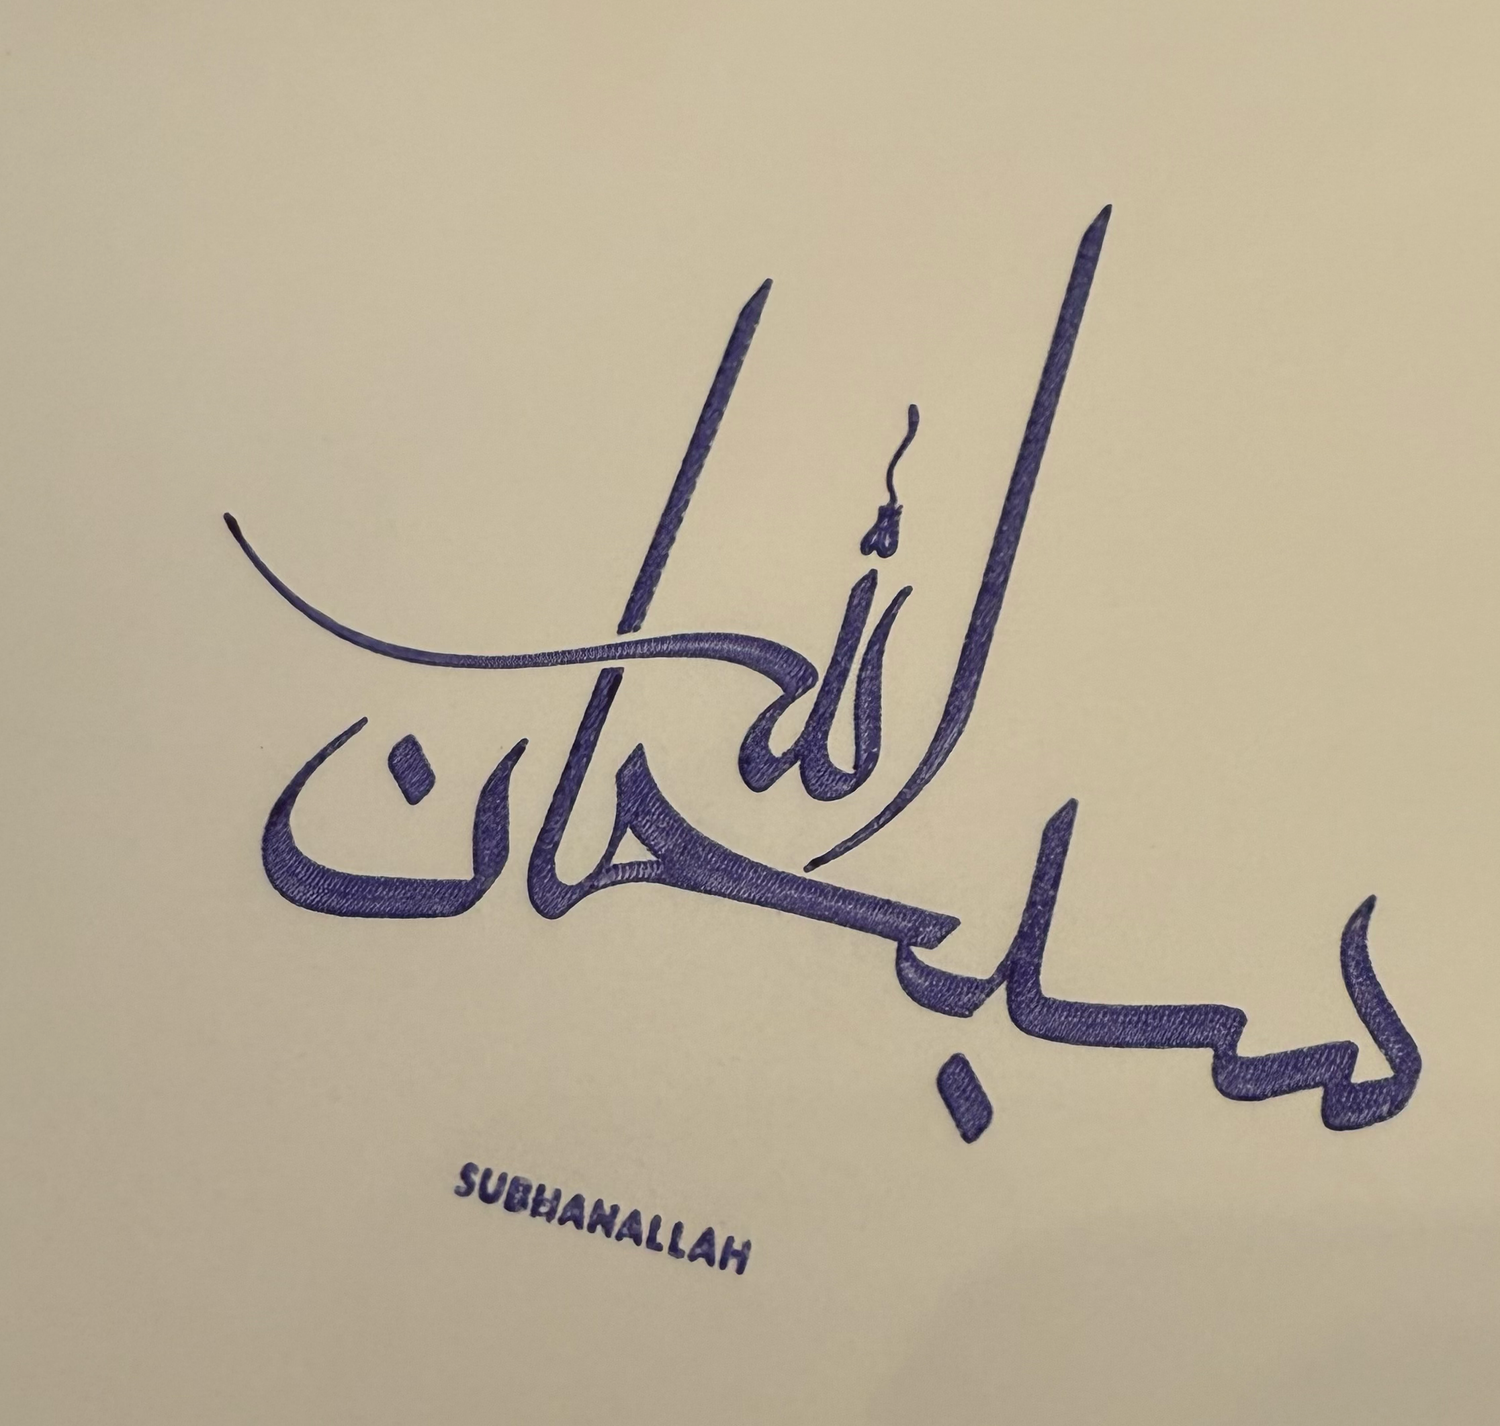 سبحان الله
SUBHANALLAH